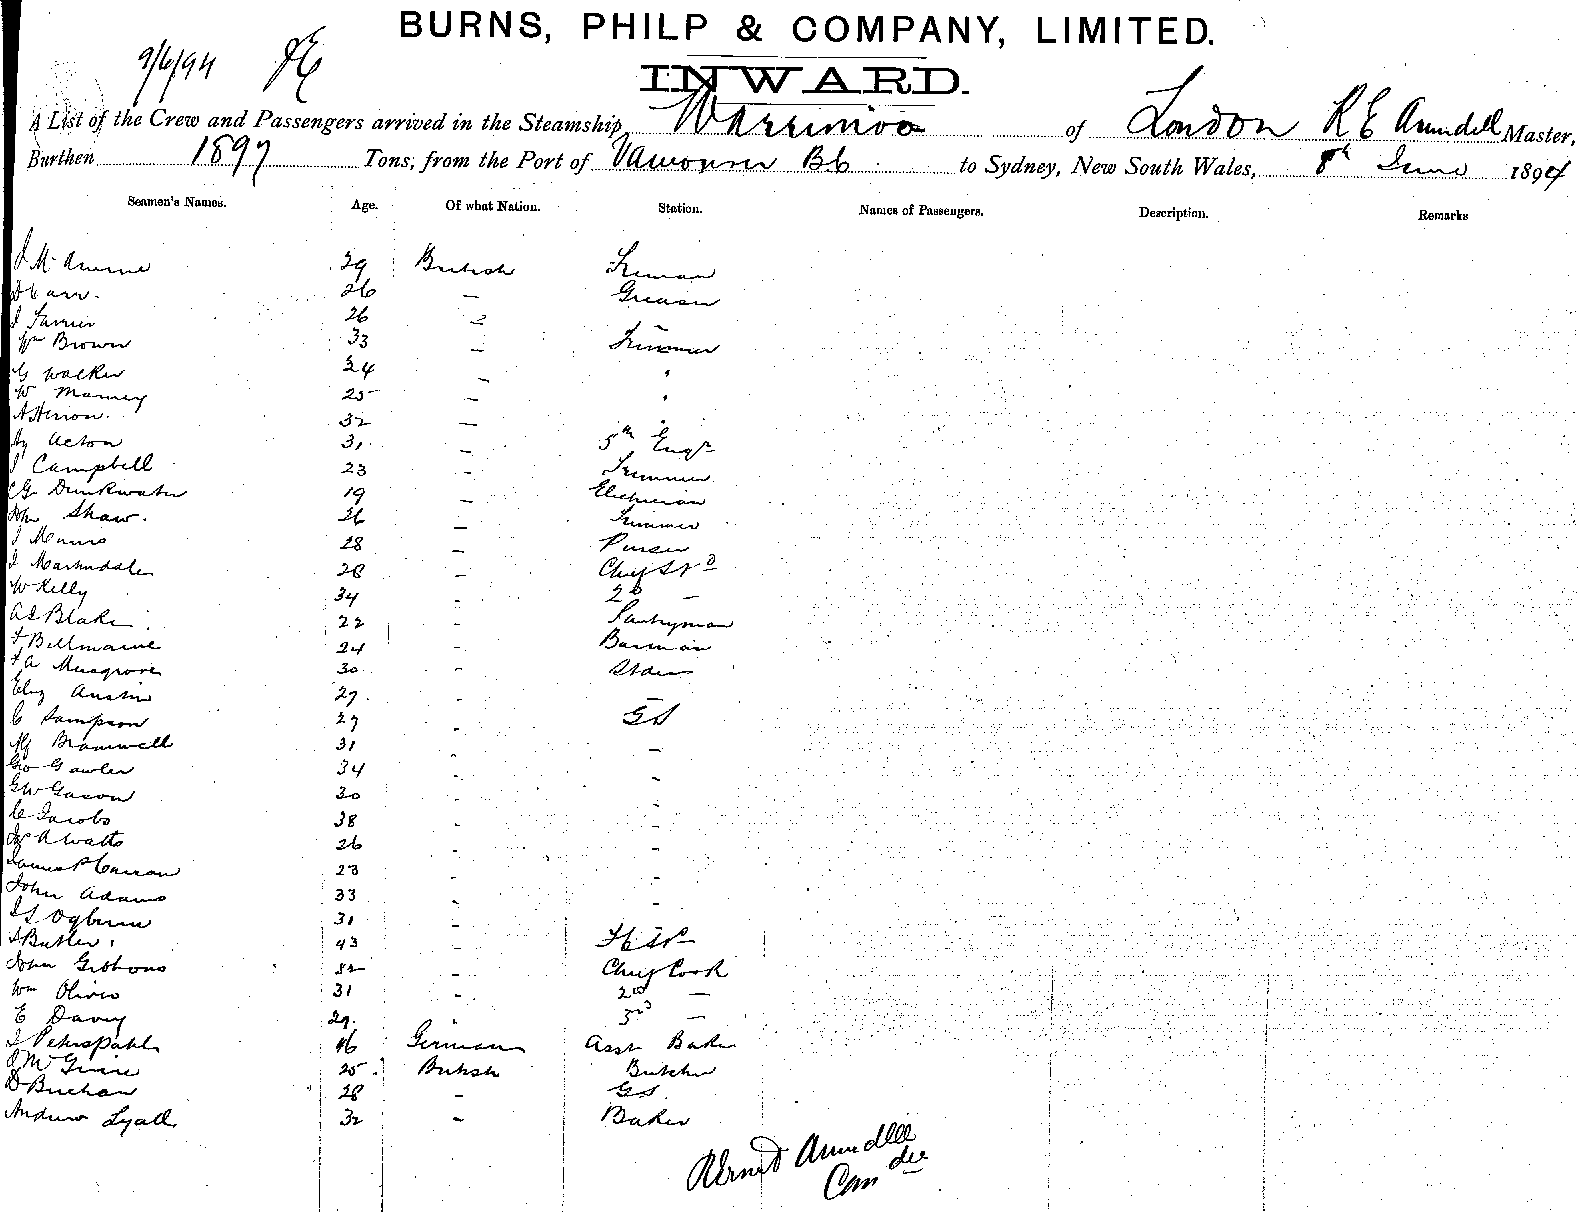 BURNS, PHILP & COMPANY, LIMITED.
9/6/94
INWARD.
A List of the Crew and Passengers arrived in the Steamship Warrimoo of London R E Arundell Master,
Burthen 1897 Tons, from the Port of Vancouver BC to Sydney, New South Wales, 8th June 1894
Seamen's Names. Age. Of what Nation. Station. Names of Passengers. Description. Remarks
29 British Fireman
Carr. 26 – Greaser
26 –
Wm Brown 33 – Trimmer
G Walker 24 – "
W 25 – "
32 "
Hy Acton 31 – 5th Engr
J Campbell 23 – Trimmer
C G Drinkwater 19 – Electrician
John Shaw. 26 – Trimmer
J Munro 28 – Purser
J Martindale 28 – Chief Std
W Kelly 34 – 2d –
A E Blake 22 – Pantryman
F Bellmaine 24 – Barman
F A Musgrove 30 – Stdess
Eliz Austin 27 – –
C Sampson 27 – GS
Alf Bramwell 31 – –
Geo Gawler 34 – –
G W Gason 30 – –
C Jacobs 38 – –
A Watts 26 – –
James P Curran 23 – –
John Adams 33 – –
Ogburn 31 – –
Butler 43 –
John Gibbons 32 – Chief Cook
Wm Oliver 31 – 2nd –
E Davey 29. – 3rd –
J Peterspahl 46 German Asst Baker
25 British Butcher
D Buchan 28 – GS
Andrew Lyall 32 – Baker
R Ernest Arundell
Comder